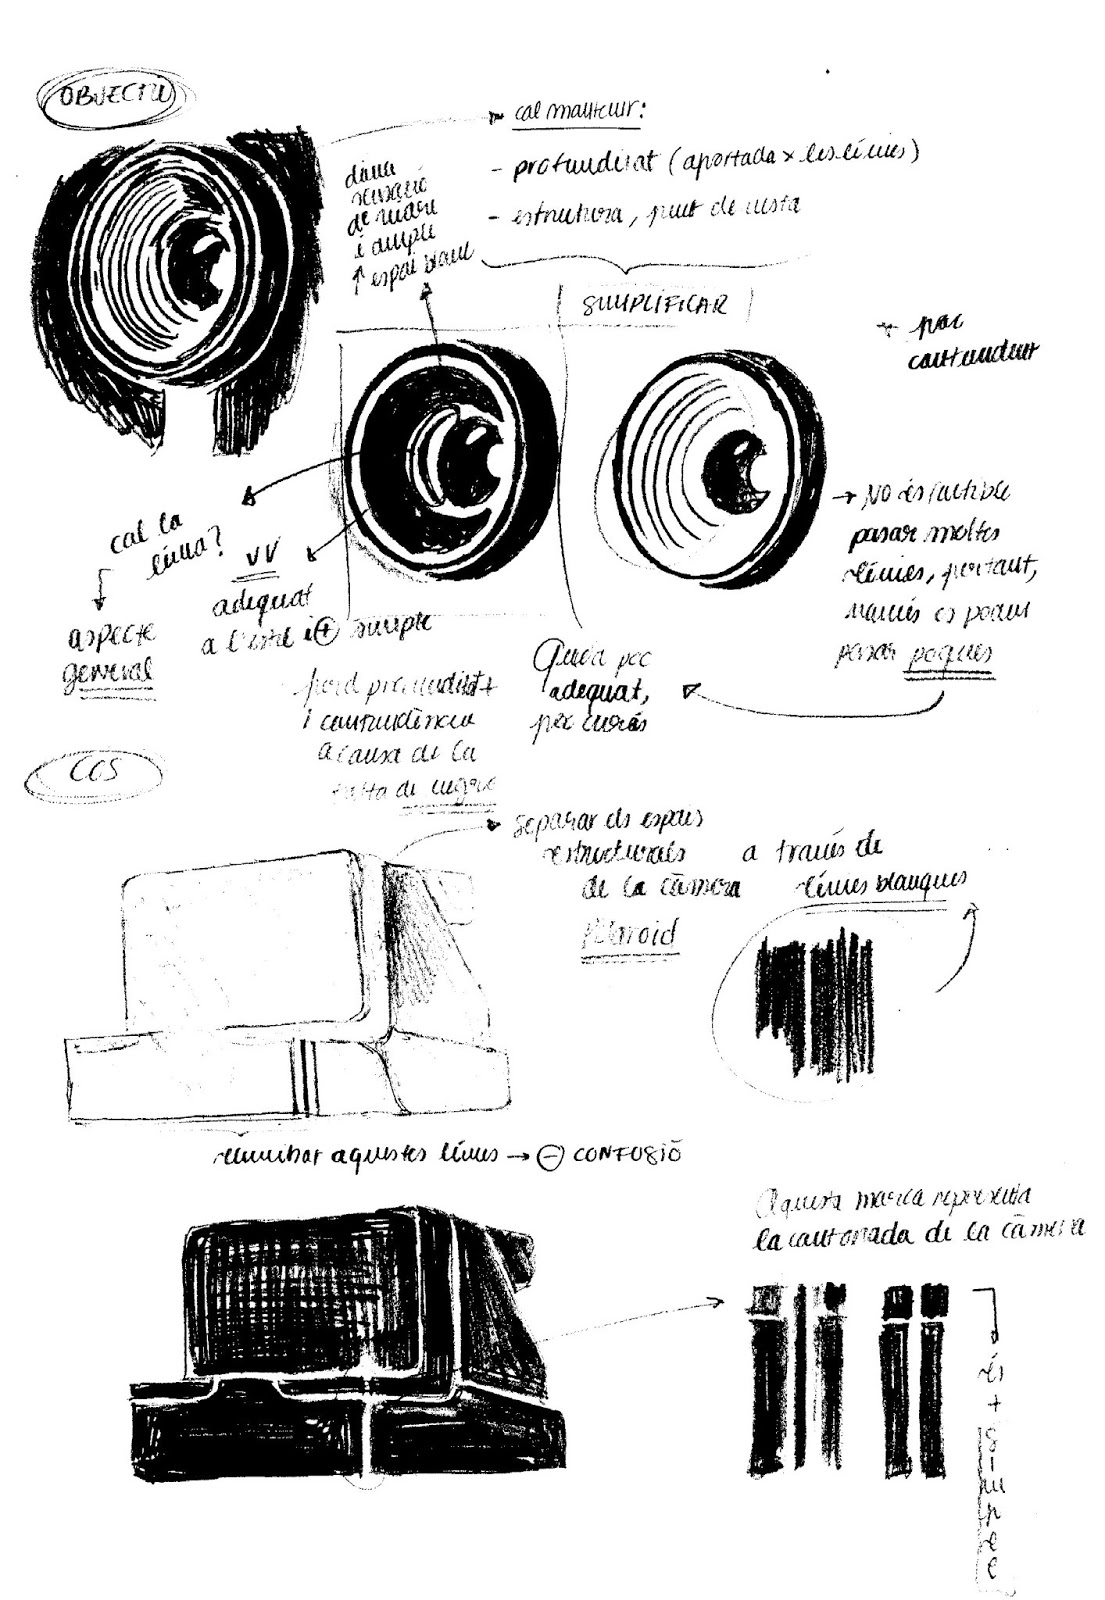 OBJECTIU
cal mantenir:
- profunditat (aportada x les línies)
- estructura, punt de vista
dóna
sensació
de marc
i ample
↑ espai blanc
SIMPLIFICAR
poc
contundent
cal la
línia?
aspecte
general
VV
adequat
a l'estil i ⊕ simple
perd profunditat
i contundència
a causa de la
falta de negre
→ NO és factible
passar moltes
línies, per tant,
només es poden
posar poques
Queda poc
adequat,
poc curós
COS
separar els espais
estructurals a través de
de la càmera línies blanques
Polaroid
eliminar aquestes línies → ⊖ CONFUSIÓ
Aquesta marca representa
la cantonada de la càmera
és + simple